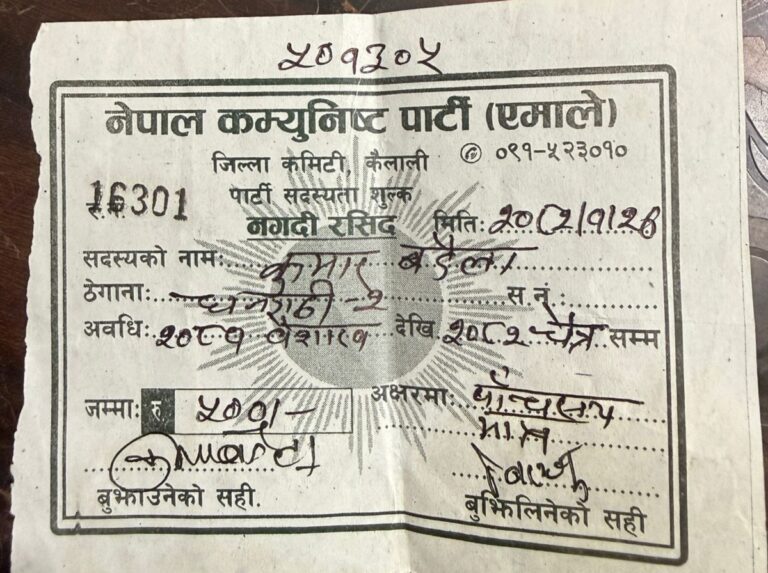 ५०१३०५
नेपाल कम्युनिष्ट पार्टी (एमाले)
जिल्ला कमिटी, कैलाली ✆ ०९१-५२३०१०
16301 पार्टी सदस्यता शुल्क
नगदी रसिद मिति: २०८२/१/२७
सदस्यको नाम: कुमार बडैला
ठेगाना: धनगढी -२ स.नं.:
अवधि: २०८१ वैशाख देखि २०८२ चैत्र सम्म
जम्मा: रु ५००/- अक्षरमा: पाँचसय
मात्र
बुझाउनेको सही. बुझिलिनेको सही